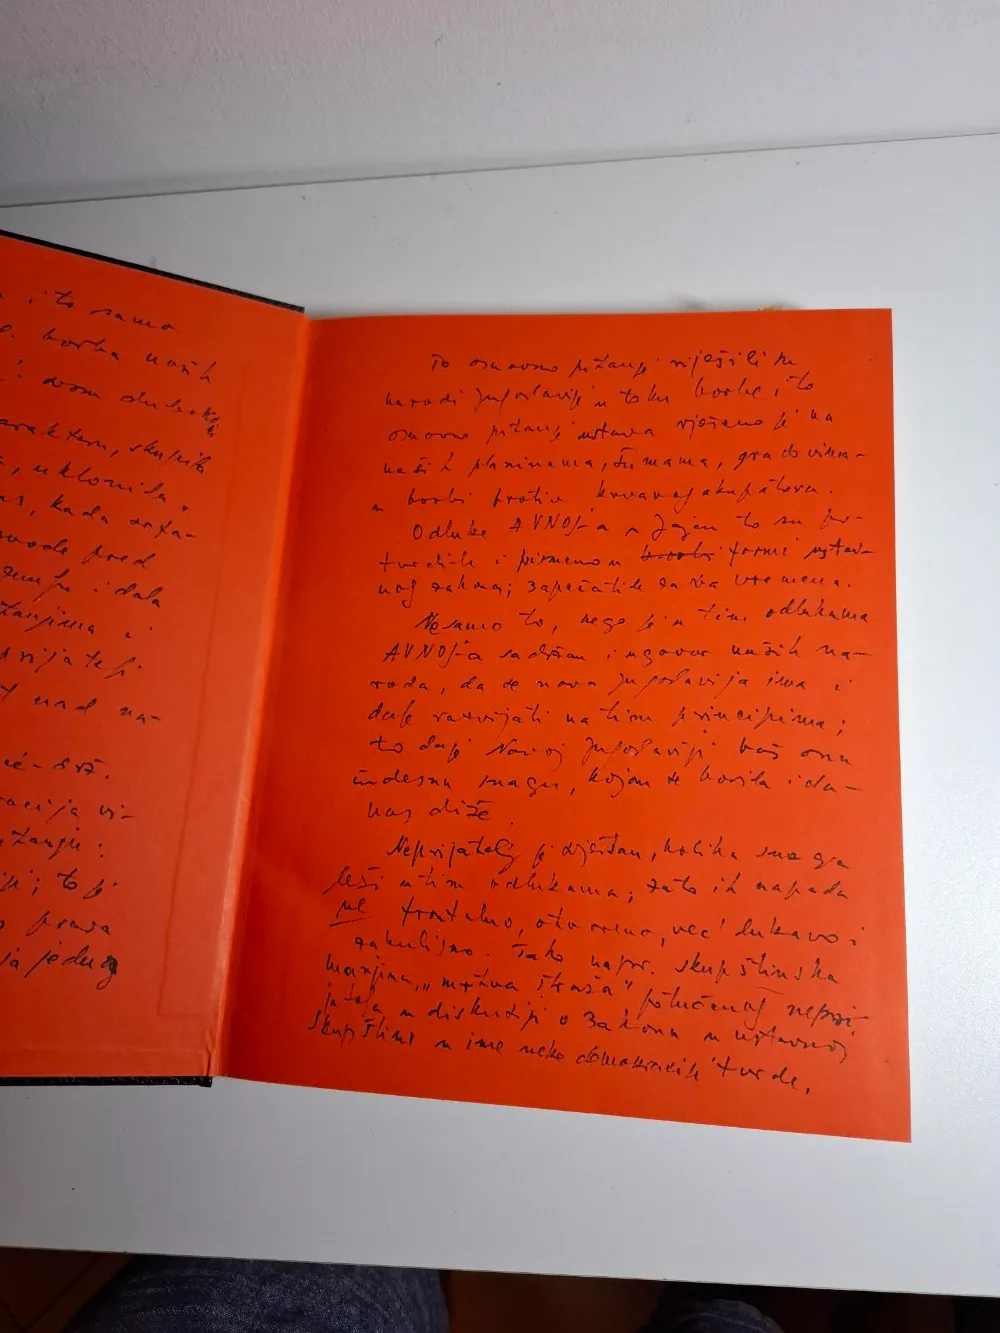 i to samo
borba naših
i svom dubokom
karakteru, skupila
uklonila
nas, kada
pred
i dala
prijatelj
nad na-
vi-
to je
prava
jednog
To osnovno pitanje riješili su
narodi Jugoslavije u toku borbe, i to
osnovno pitanje ustava riješeno je na
našim planinama, šumama, gradovima-
u borbi protiv krvavog okupatora.
Odluke AVNOJ-a u Jajcu to su po-
tvrdile i pismeno u formi ustav-
nog zakona; zapečatile za sva vremena.
Ne samo to, nego je u tim odlukama
AVNOJ-a sadržan i ugovor naših na-
roda, da se nova Jugoslavija ima i
dalje razvijati na tim principima;
to daje Novoj Jugoslaviji baš onu
čudesnu snagu, kojom se borila i da-
nas diže.
Neprijatelj je svjestan, kolika snaga
leži u tim odlukama; zato ih napada
ne frontalno, otvoreno, već lukavo i
zakulisno. Tako napr. skupštinska
manjina, „mrtva straža" potučenog nepri-
jatelja u diskusiji o Zakonu u ustavnoj
skupštini u ime neke demokracije tvrde,